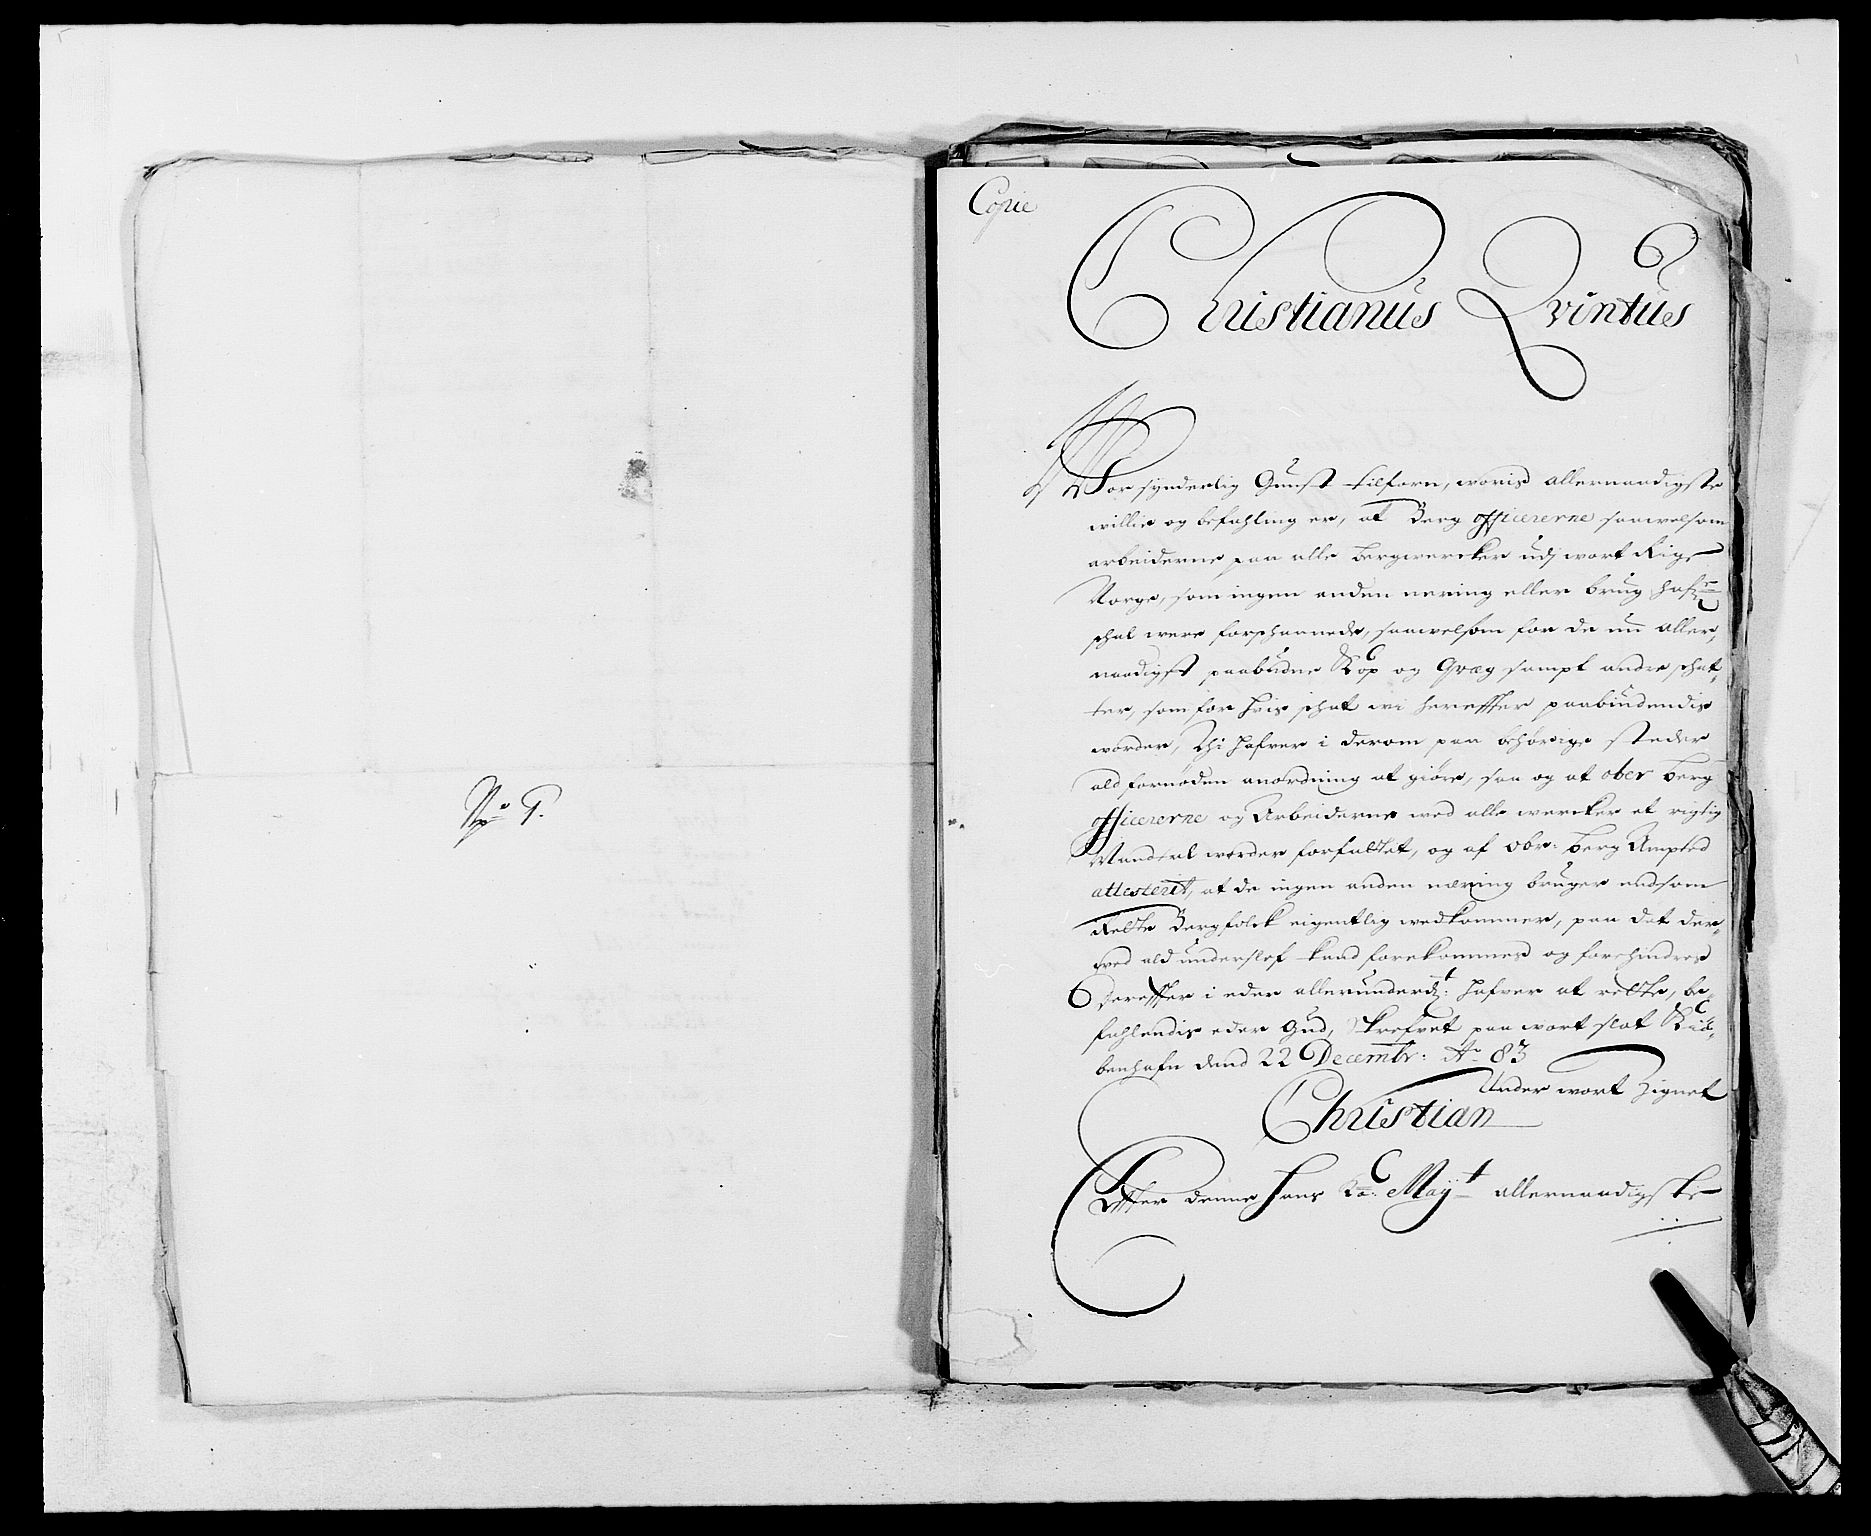 No 9.
Copie
Christianus Qvintus
Vor synderlig Gunst tilforn, woris allernaadigste
willie og befahling er, at Berg officererne saawelsom
arbeiderne paa alle bergwercker udj wort Rige
Norge, som ingen anden nering eller brug hafr
schal were forschaanede, saawelsom for de nu aller,,
naadigst paabudne Kop og Qvæg sampt andre schat,,
ter, som for hvis schat wi hereffter paabiudendis
worder, Thi hafver i derom paa behörige steder
ald fornöden anordning at giöre, saa og at ober berg
officererne og Arbeiderne wed alle wercker et rigtig
Mandtal worder forfattet, og af obr: berg Ampted
attesterit, at de ingen anden næring bruger end som
Rette Bergfolck eigentlig wedkommer, paa det der,,
wed ald underslef kand forekommes og forhindres
Dereffter i eder allerunderdt: hafver at rette, be,,
fahlendis eder Gud, Skrefvet paa wort slot Kiö,,
benhafn dend 22 Decembr: Ao 83
Under wort Zignet
Christian
Effter denne Hans Ko: Mayt allernaadigste